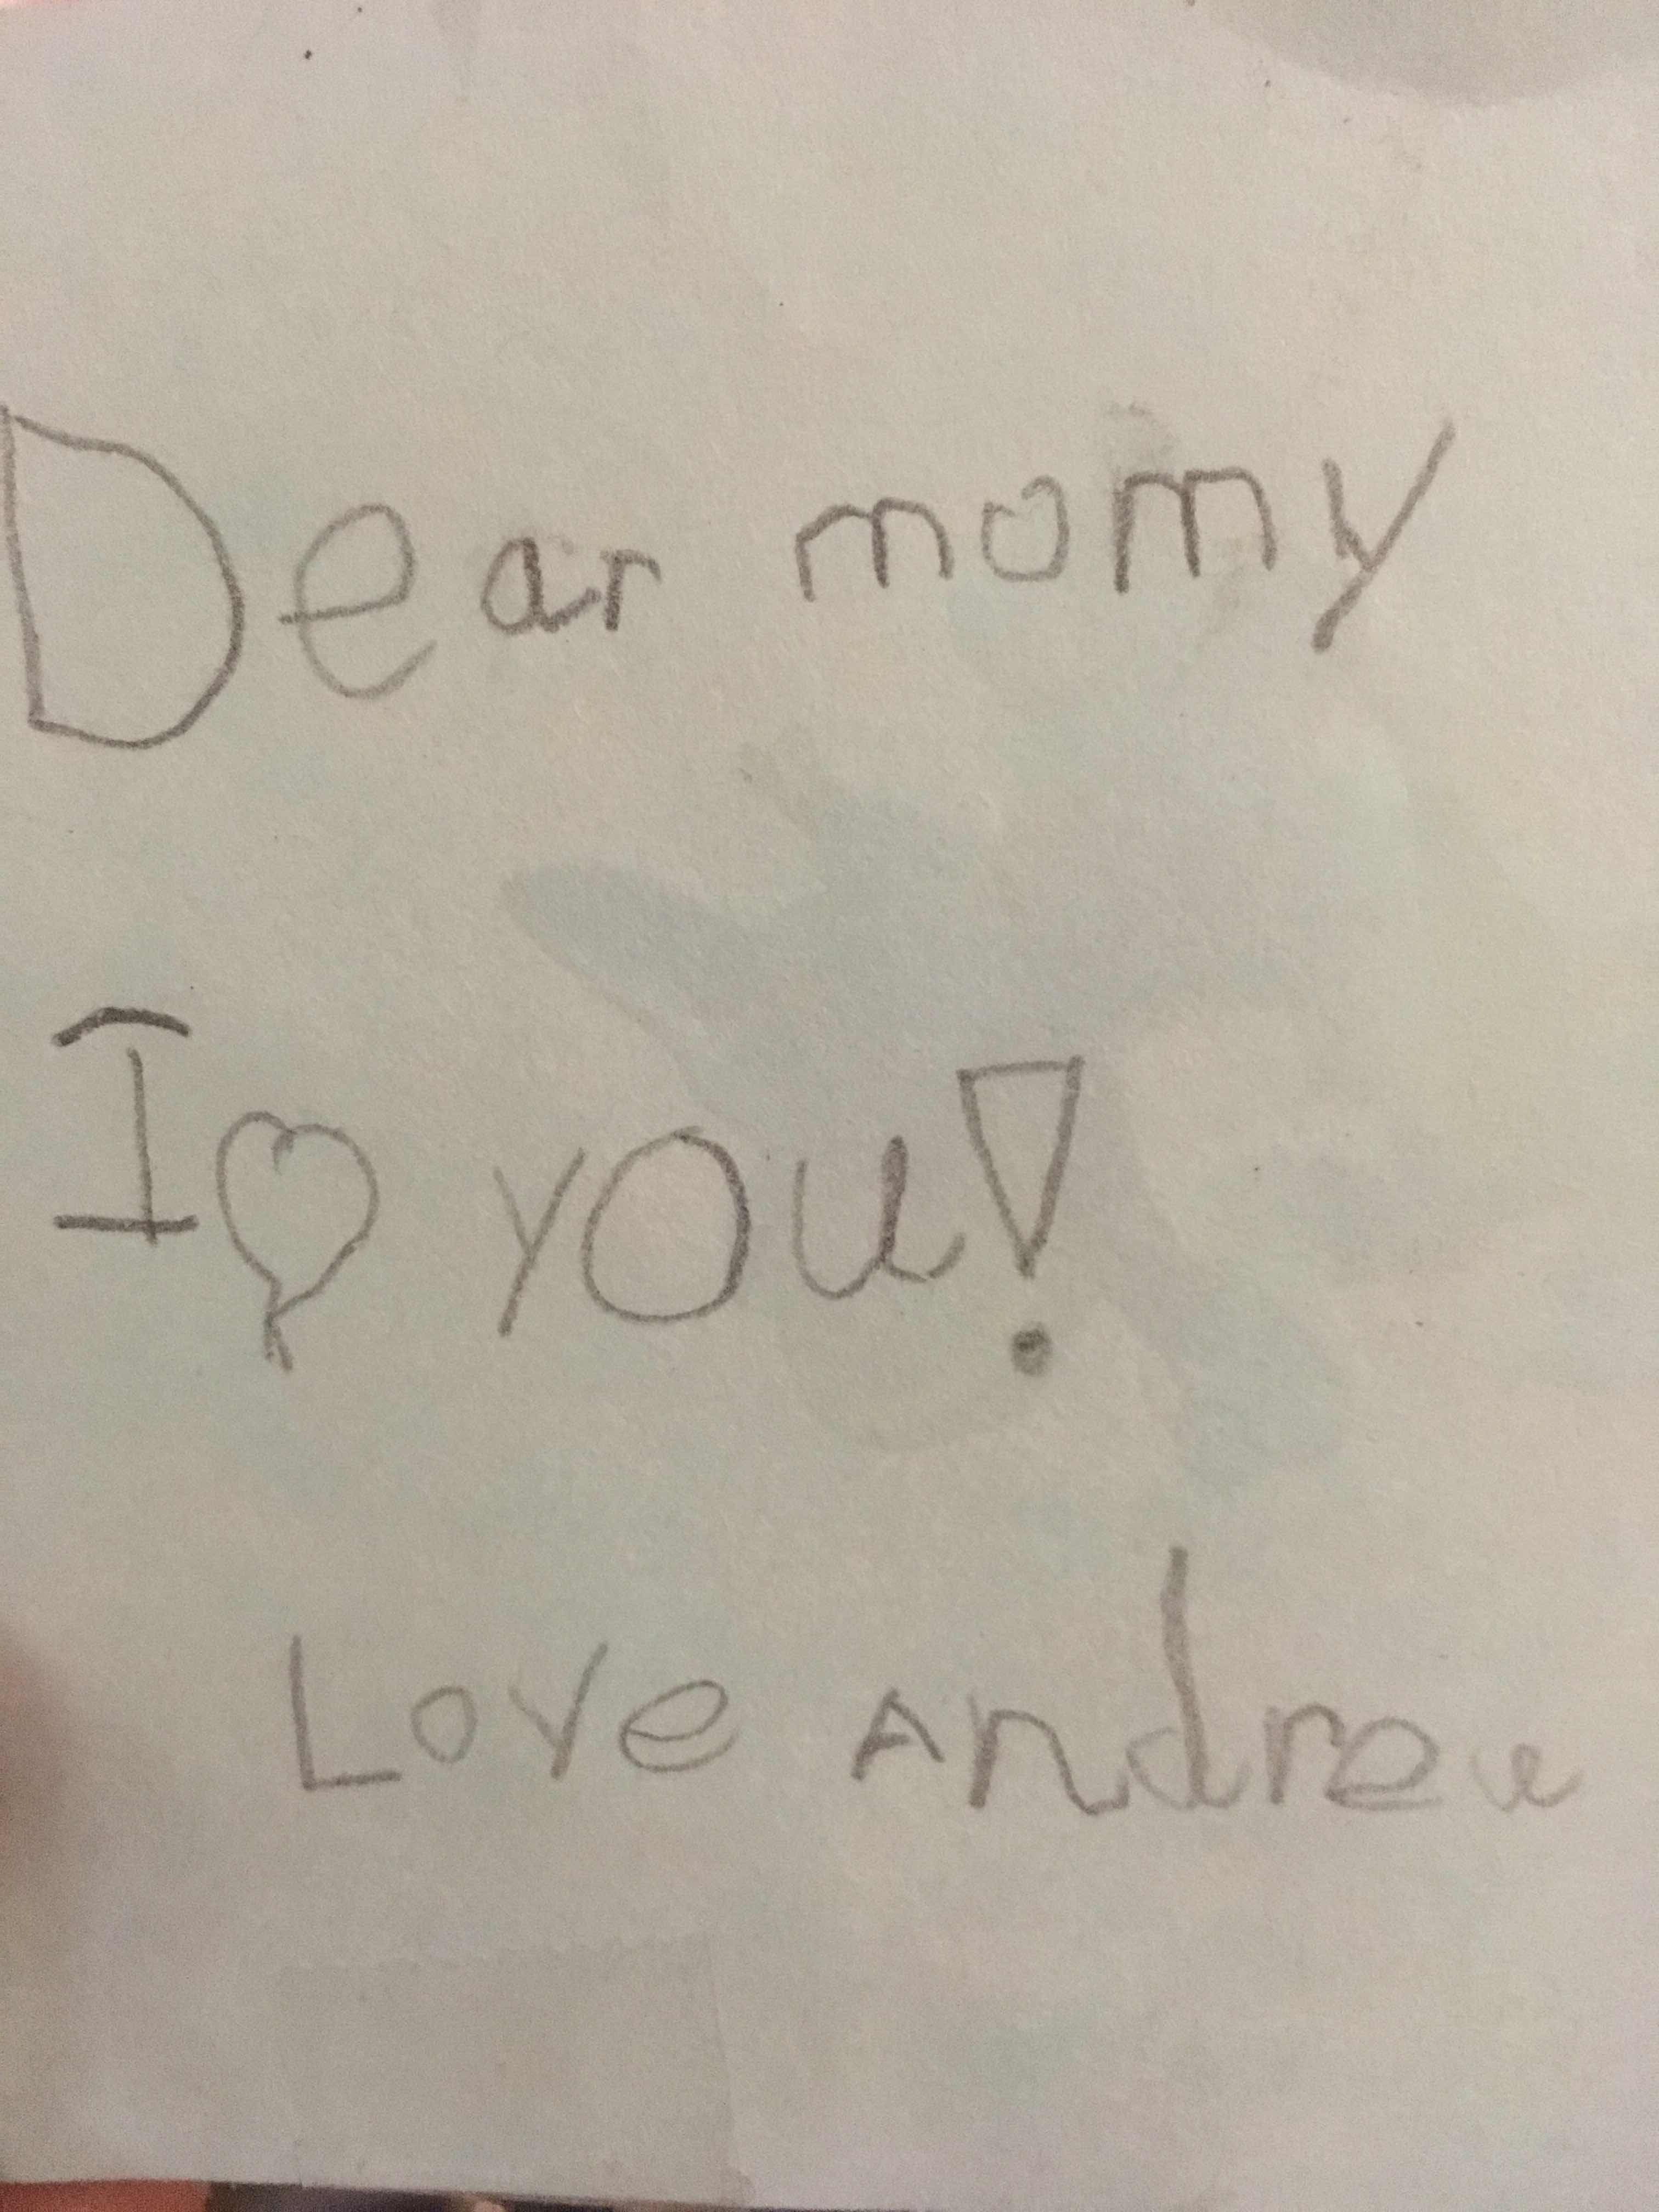 Dear momy
I ♡ you!
Love Andreu